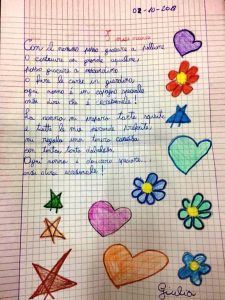 02-10-2018
I miei nonni
Con il nonno posso giocare a pallone
O costruire un grande aquilone,
posso giocare a nascondino
O fare le corse in giardino,
ogni nonno è un compagno speciale
anzi direi che è eccezionale!
La nonna mi prepara torte squisite
e tutte le mie merende preferite;
mi regala una tenera carezza
con tanta, tanta dolcezza.
Ogni nonna è davvero speciale...
anzi direi eccezionale!
Giulia